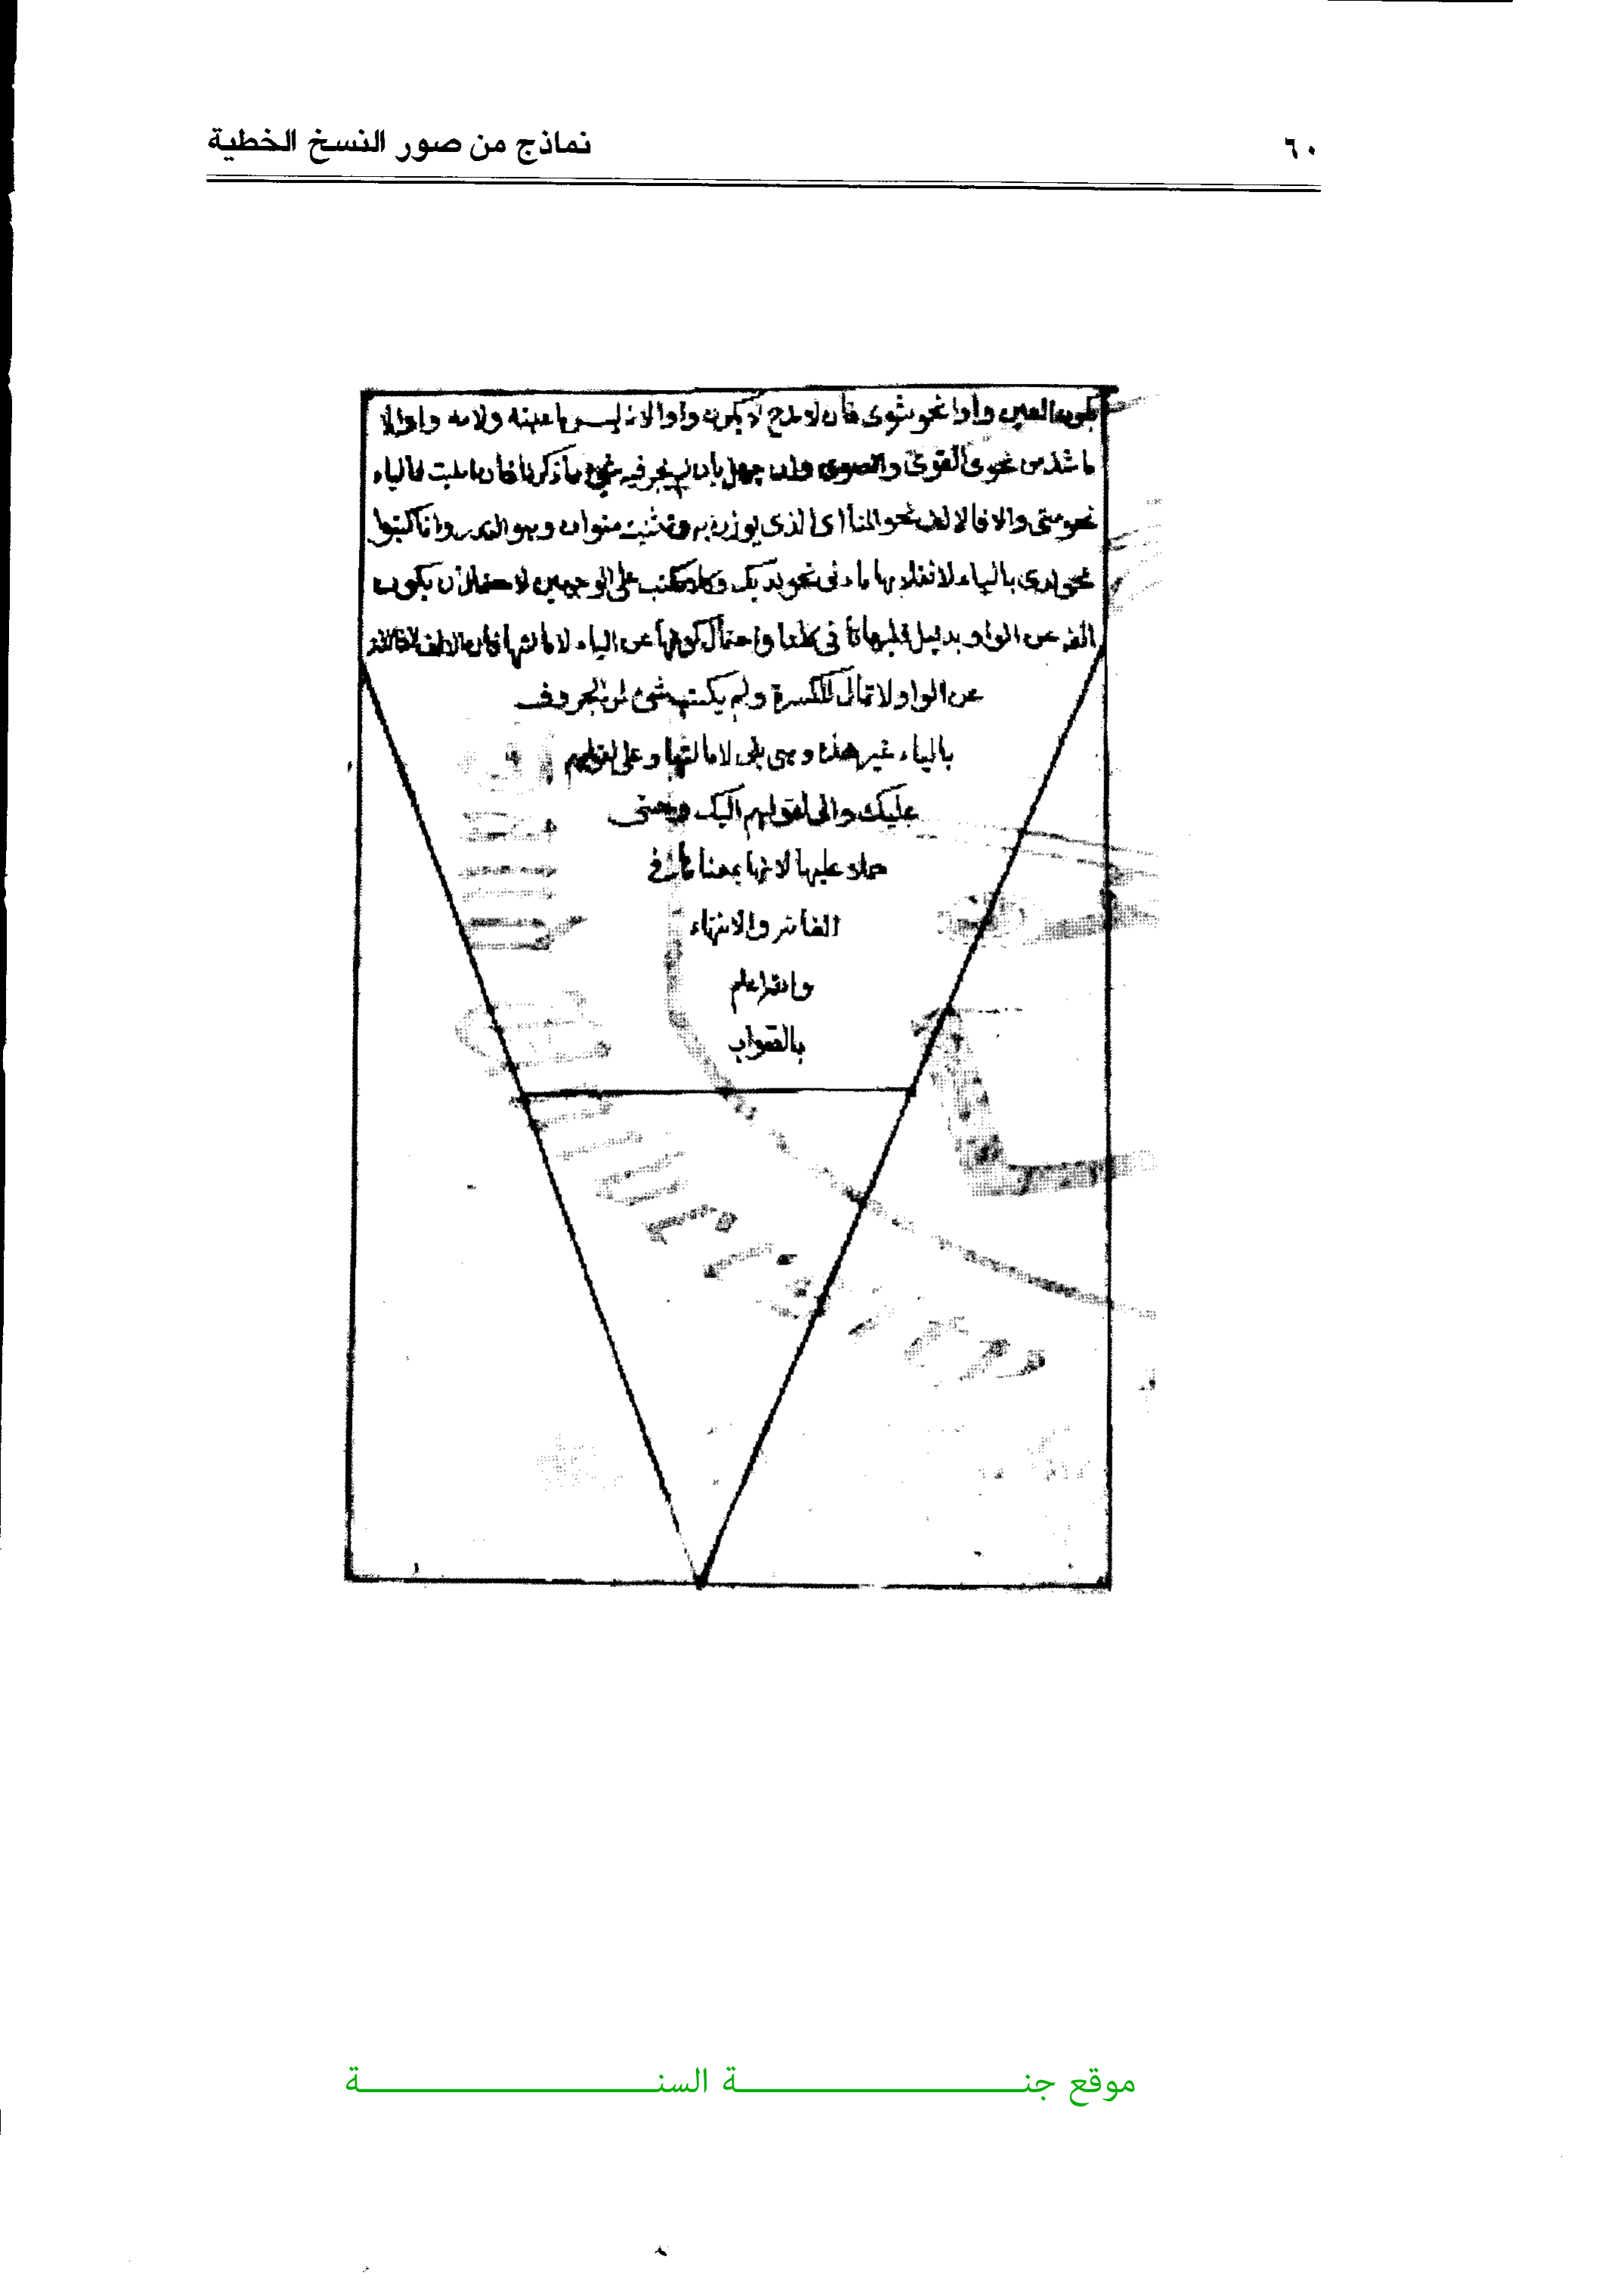 ٦٠ نماذج من صور النسخ الخطية
بكون العين واوا نحو شوى فان لامه لا يكون واوا لانه ليس ما عينه ولامه واو الا
ما شذ من نحو القوى والصوى وان جهل بان لم يجر فيه نحو ما ذكرنا فان اميلت فالياء
نحو متى والا فالالف نحو المنا اى الذى يوزن به وتثنيته منوان وهو القدر وانما كتبوا
نحو لدى بالياء لانقلابها ياء فى نحو لديك وكلا يكتب على الوجهين لاحتمال ان يكون
الفه عن الواو بدليل قلبها تا فى كلتا واحتمال كونها عن الياء لامالتها فان الالف
عن الواو لا تمال للكسرة ولم يكتب شئ من الحروف
بالياء غير هذه وهى بلى لامالتها وعلى لقولهم
عليك والى لقولهم اليك وحتى
حملا عليها لانها بمعناها فى
الغاية والانتهاء
والله اعلم
بالصواب
موقع جنــــــة السنــــــة